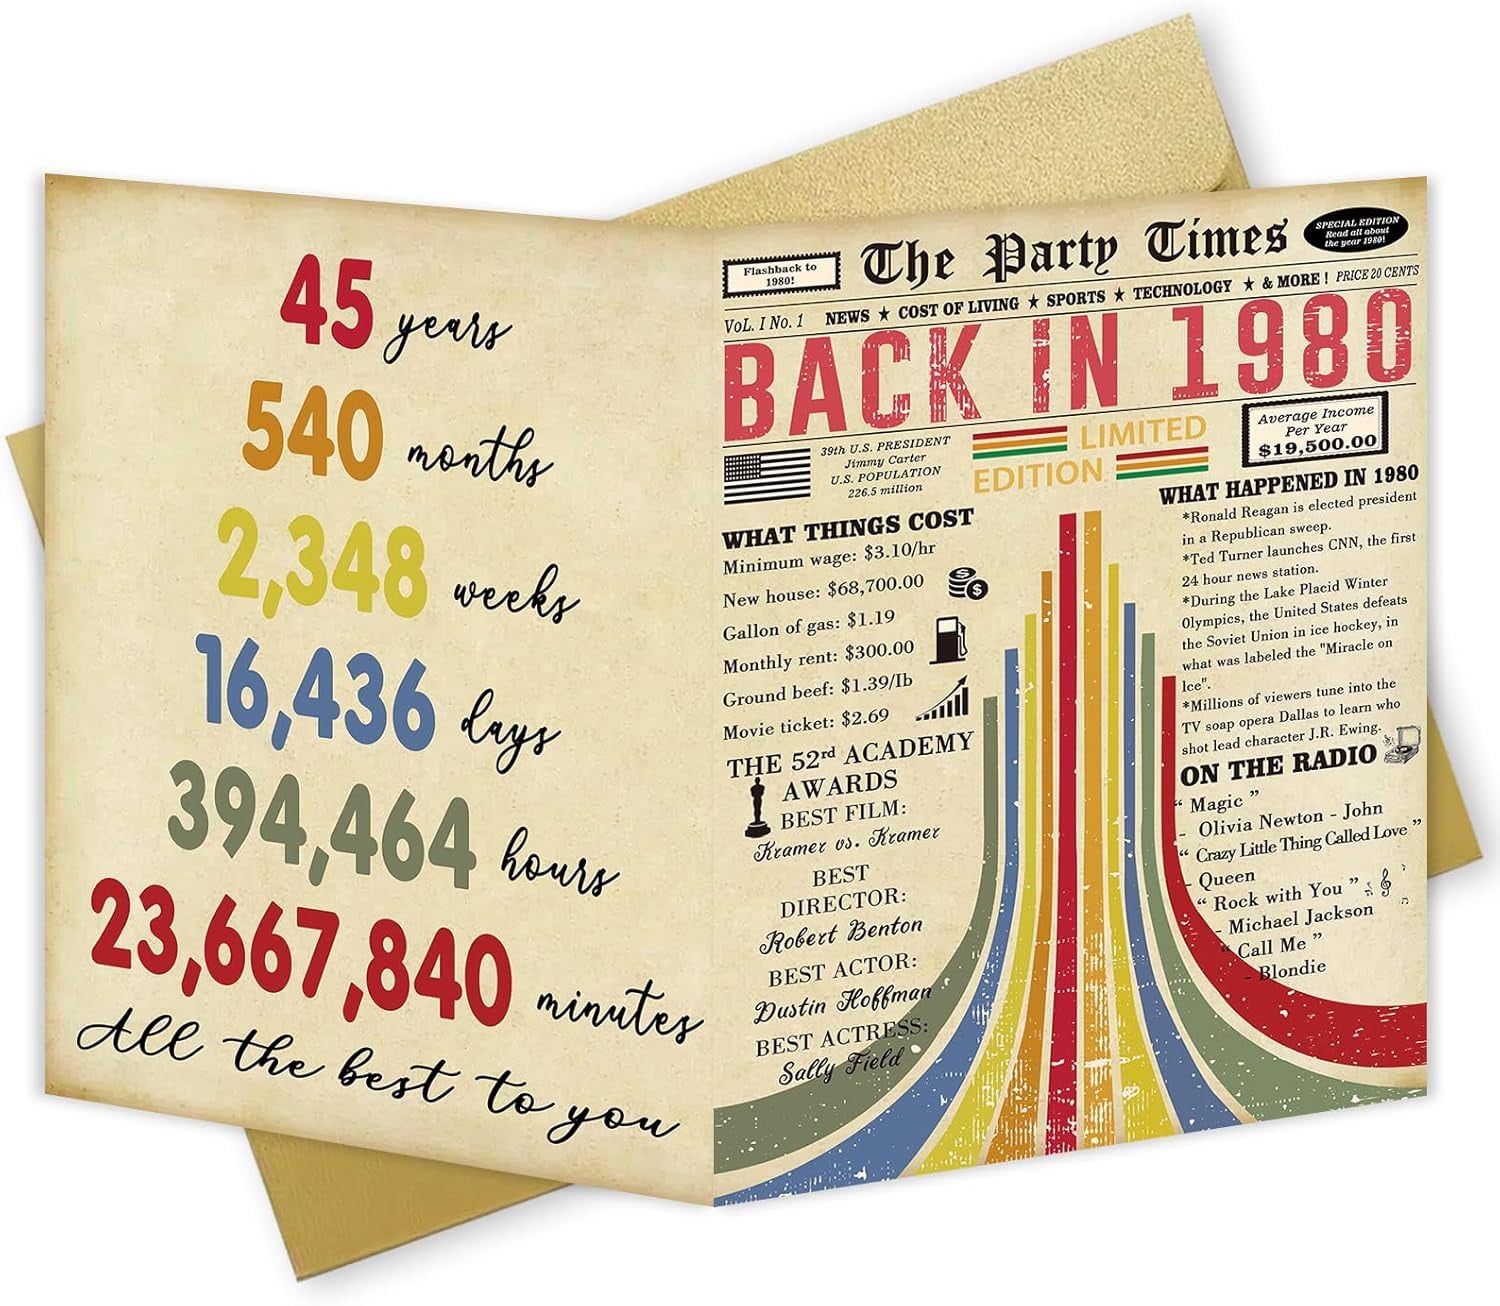 45 years
540 months
2,348 weeks
16,436 days
394,464 hours
23,667,840 minutes
All the best to you
Flashback to
1980!
The Party Times
SPECIAL EDITION
Read all about
the year 1980!
VoL. I No. 1
NEWS ★ COST OF LIVING ★ SPORTS ★ TECHNOLOGY ★ & MORE !
PRICE 20 CENTS
BACK IN 1980
39th U.S. PRESIDENT
Jimmy Carter
U.S. POPULATION
226.5 million
LIMITED
EDITION
Average Income
Per Year
$19,500.00
WHAT THINGS COST
Minimum wage: $3.10/hr
New house: $68,700.00
Gallon of gas: $1.19
Monthly rent: $300.00
Ground beef: $1.39/Ib
Movie ticket: $2.69
THE 52rd ACADEMY
AWARDS
BEST FILM:
Kramer vs. Kramer
BEST
DIRECTOR:
Robert Benton
BEST ACTOR:
Dustin Hoffman
BEST ACTRESS:
Sally Field
WHAT HAPPENED IN 1980
*Ronald Reagan is elected president
in a Republican sweep.
*Ted Turner launches CNN, the first
24 hour news station.
*During the Lake Placid Winter
Olympics, the United States defeats
the Soviet Union in ice hockey, in
what was labeled the "Miracle on
Ice".
*Millions of viewers tune into the
TV soap opera Dallas to learn who
shot lead character J.R. Ewing.
ON THE RADIO
“ Magic ”
- Olivia Newton - John
“ Crazy Little Thing Called Love ”
- Queen
“ Rock with You ”
- Michael Jackson
“ Call Me ”
- Blondie